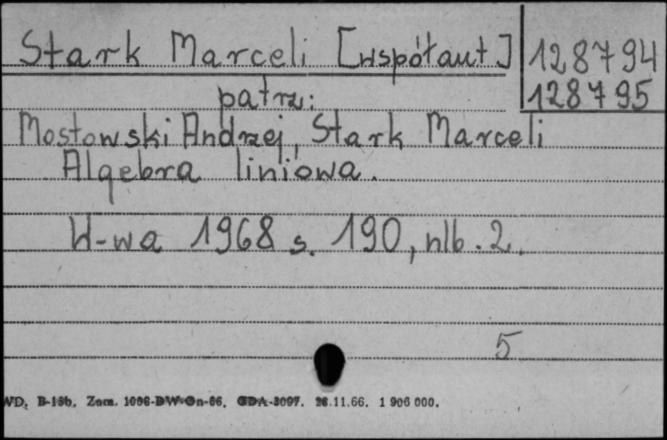 Stark Marceli [współaut.] 128794
128795
patrz:
Mostowski Andrzej, Stark Marceli
Algebra liniowa.
W-wa 1968 s. 190, nlb. 2.
5
WD, B-15b. Zam. 1096-DW-Gn-66. GDA-3097. 28.11.66. 1 906 000.